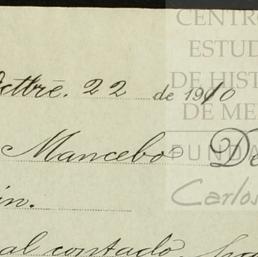 CENTRO
ESTUD
DE HIST
DE ME
octtbrē. 22 de 1910
Mancebo De
FUNDA
Carlos
in.
al contado